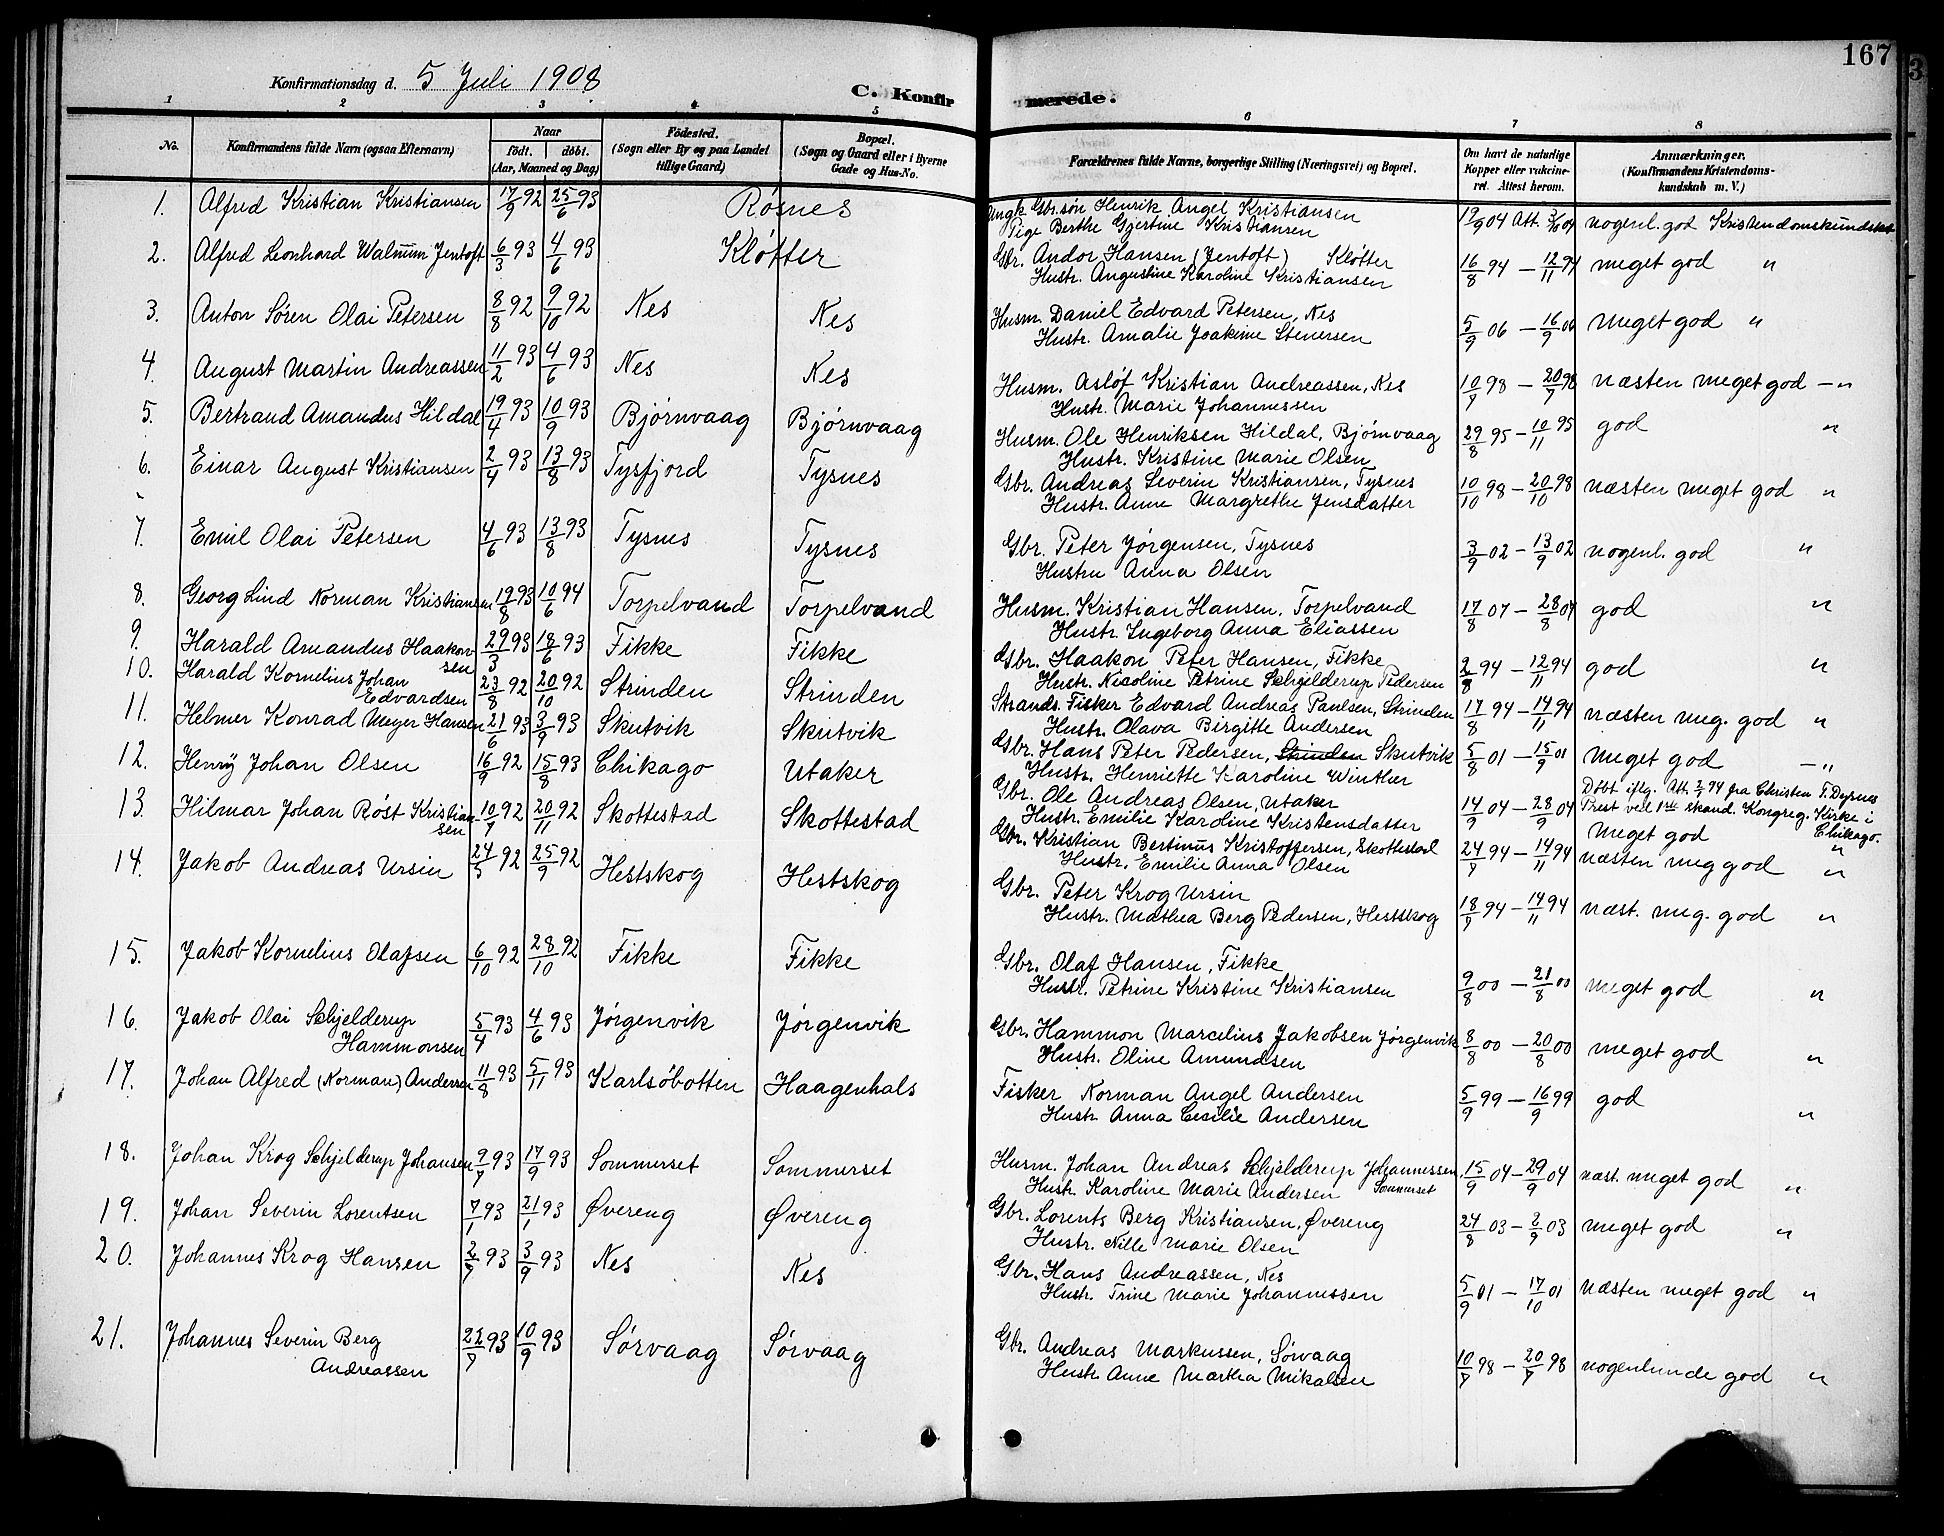 167
Konfirmationsdag d. 5 Juli 1908
C. Konfirmerede.
1 2 3 4 5 6 7 8
No. | Konfirmandens fulde Navn (ogsaa Efternavn) | Naar født. døbt. (Aar, Maaned og Dag) | Fødested. (Sogn eller By og paa Landet tillige Gaard) | Bopæl. (Sogn og Gaard eller i Byerne Gade og Hus-No. | Forældrenes fulde Navne, borgerlige Stilling (Næringsvei) og Bopæl. | Om havt de naturlige Kopper eller vakcineret. Attest herom. | Anmærkninger. (Konfirmandens Kristendomskundskab m. V.)
1. Alfred Kristian Kristiansen 17/9 92 25/6 93 Røsnes Ungk. Gbr.søn Henrik Angel Kristiansen 19/9 04 Att. nogenl. god Kristendomskundskab
Pige Berthe Gjertine Kristiansen
2. Alfred Leonhard Walnum Jentoft 6/3 93 4/6 93 Kløtter Gbr. Andor Hansen (Jentoft) Kløtter 16/8 94 – 12/11 94 meget god "
Hustr. Augustine Karoline Kristiansen
3. Anton Søren Olai Petersen 8/8 92 9/10 92 Nes Nes Husm. Daniel Edvard Petersen, Nes 5/9 06 – 16/9 06 meget god "
Hustr. Amalie Joakime Stenersen
4. August Martin Andreassen 11/2 93 4/6 93 Nes Nes Husm. Asløf Kristian Andreassen, Nes 10/7 98 – 20/7 98 næsten meget god – "
Hustr. Marie Johannessen
5. Bertrand Amandus Hildal 19/4 93 10/9 93 Bjørnvaag Bjørnvaag Husm. Ole Henriksen Hildal, Bjørnvaag 29/8 95 – 10/11 95 god "
Hustr. Kristine Marie Olsen
6. Einar August Kristiansen 2/4 93 13/8 93 Tysfjord Tysnes Gbr. Andreas Severin Kristiansen, Tysnes 10/10 98 – 20/10 98 næsten meget god "
Hustr. Anne Margrethe Jensdatter
7. Emil Olai Petersen 4/6 93 13/8 93 Tysnes Tysnes Gbr. Peter Jørgensen, Tysnes 3/9 02 – 13/9 02 nogenl. god "
Hustru Anna Olsen
8. Georg Lind Norman Kristiansen 19/8 93 10/6 94 Torpelvand Torpelvand Husm. Kristian Hansen, Torpelvand 17/8 07 – 28/8 07 god "
Hustr. Ingeborg Anna Eliassen
9. Harald Amandus Haakonsen 29/3 93 18/6 93 Fikke Fikke Gbr. Haakon Peter Hansen, Fikke 2/8 94 – 12/11 94 god "
Hustr. Nicoline Petrine Schjelderup Pedersen
10. Harald Kornelius Johan Edvardsen 23/8 92 20/10 92 Strinden Strinden Strands. Fisker Edvard Andreas Paulsen, Strinden 17/8 94 – 14/11 94 næsten meg. god "
Hustr. Olava Birgitte Andersen
11. Helmer Konrad Meyer Hansen 21/6 93 3/9 93 Skutvik Skutvik Gbr. Hans Peter Pedersen, Strinden Skutvik 5/8 01 – 15/9 01 meget god – "
Hustr. Henriette Karoline Winther
12. Henry Johan Olsen 16/9 92 15/8 93 Chikago Utaker Gbr. Ole Andreas Olsen, Utaker 14/9 04 – 28/9 04 Døbt iflg. Att. 2/7 94 fra Christen T. Dyrnes
Prest ved 1ste skand. Kongreg. Kirke i Chikago.
Meget god "
Hustr. Emilie Karoline Kristensdatter
13. Hilmar Johan Røst Kristiansen 10/7 92 20/11 92 Skottestad Skottestad Gbr. Kristian Bertinus Kristoffersen, Skottestad 24/7 94 – 14/11 94 næsten meg god "
Hustr. Emilie Anna Olsen
14. Jakob Andreas Ursin 24/5 92 25/9 92 Hestskog Hestskog Gbr. Peter Krog Ursin 18/7 94 – 14/11 94 næst. meg. god "
Hustr. Mathea Berg Pedersen, Hestskog
15. Jakob Kornelius Olafsen 6/10 92 28/10 92 Fikke Fikke Gbr. Olaf Hansen, Fikke 9/8 00 – 21/8 00 meget god "
Hustr. Petrine Kristine Kristiansen
16. Jakob Olai Schjelderup Hammonsen 5/4 93 4/6 93 Jørgenvik Jørgenvik Gbr. Hammon Marcelius Jakobsen Jørgenvik 8/8 00 – 20/8 00 meget god "
Hustr. Oline Amundsen
17. Johan Alfred (Norman) Andersen 11/8 93 5/11 93 Karlsøbotten Haagenhals Fisker Norman Angel Andersen 5/9 99 – 16/9 99 god "
Hustr Anna Cecilie Andersen
18. Johan Krog Schjelderup Johansen 9/7 93 17/9 93 Sommerset Sommerset Husm. Johan Andreas Schjelderup Johannessen, Sommerset 15/9 04 – 29/9 04 næst. meget god "
Hustr. Karoline Marie Andersen
19. Johan Severin Lorentsen 7/1 93 21/1 93 Øvereng Øvereng Gbr. Lorents Berg Kristiansen, Øvereng 24/8 03 – 2/9 03 meget god "
Hustr. Nille Marie Olsen
20. Johannes Krog Hansen 2/7 93 3/9 93 Nes Nes Gbr. Hans Andreassen, Nes 5/9 01 – 17/10 01 næsten meget god "
Hustr. Trine Marie Johannessen
21. Johannes Severin Berg Andreassen 22/7 93 10/9 93 Sørvaag Sørvaag Gbr. Andreas Markussen, Sørvaag 10/7 98 – 20/7 98 nogenlunde god "
Hustr. Anne Martha Mikalsen